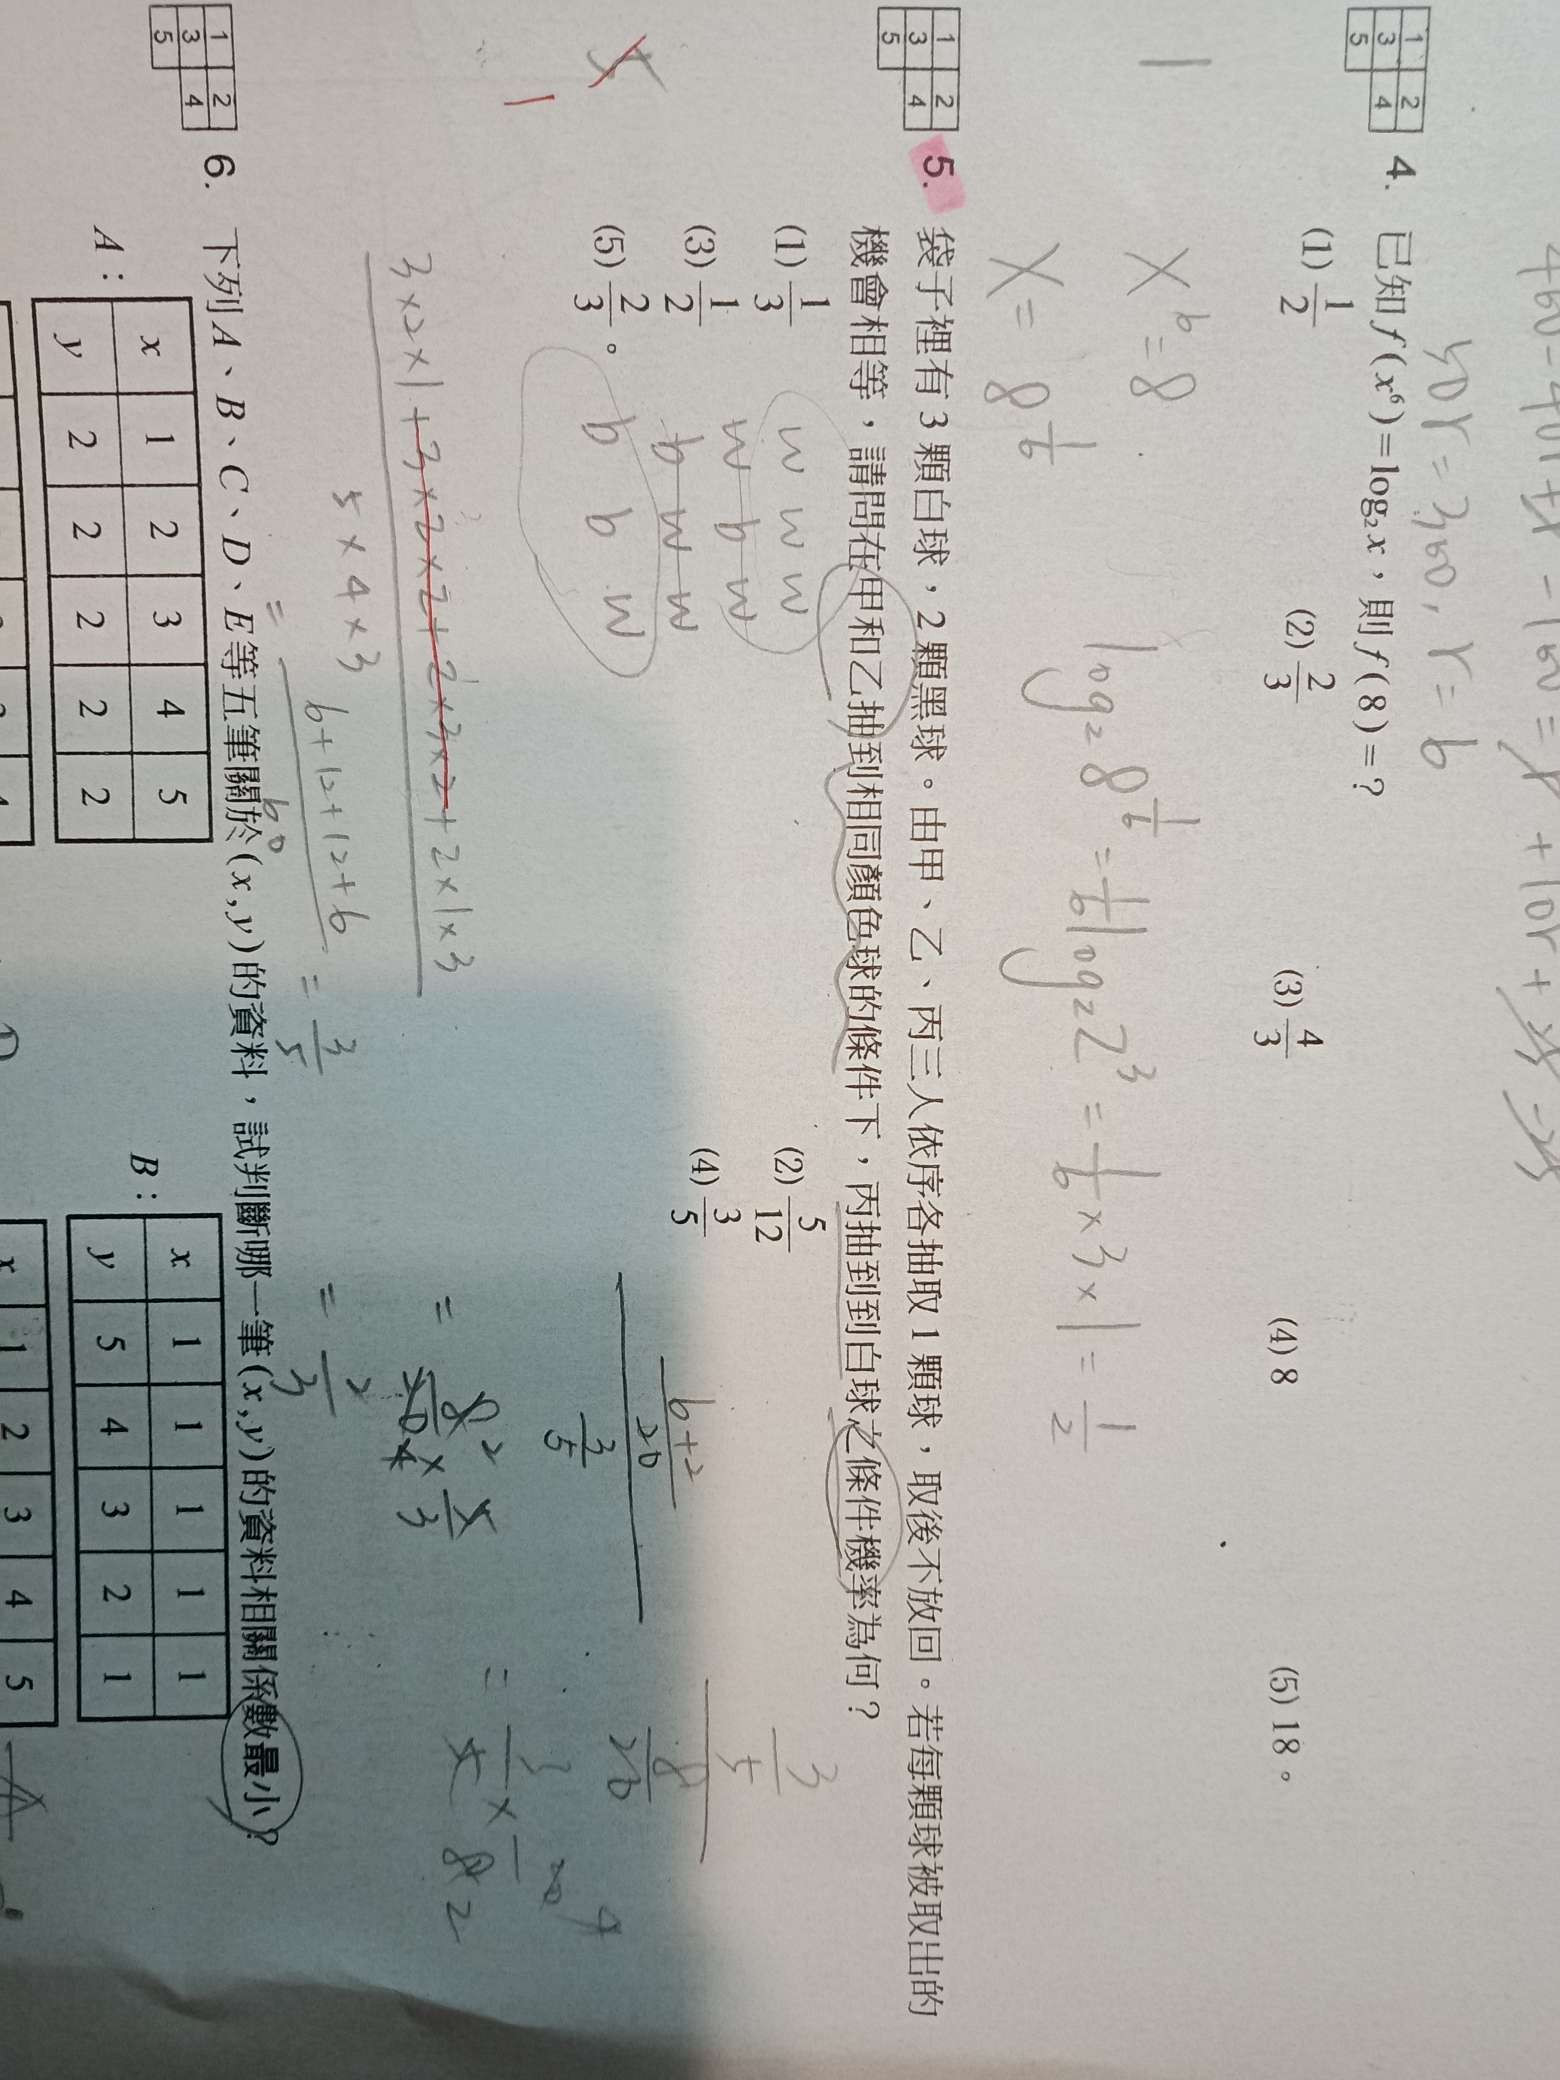 460-40r+r²-100=r²+10r+25-25
50r=300, r=6
1 2
3 4
5
4. 已知f(x⁶)=log₂x，則f(8)=?
(1) 1/2 (2) 2/3 (3) 4/3 (4) 8 (5) 18。
1
x⁶=8
x=8^(1/6)
log₂8^(1/6)=1/6 log₂2³=1/6×3×1=1/2
1 2
3 4
5
5. 袋子裡有3顆白球，2顆黑球。由甲、乙、丙三人依序各抽取1顆球，取後不放回。若每顆球被取出的
機會相等，請問在甲和乙抽到相同顏色球的條件下，丙抽到到白球之條件機率為何？
(1) 1/3 (2) 5/12
(3) 1/2 (4) 3/5
(5) 2/3。
5
1
w w w
w b w
b w w
b b w
3×2×1+3×2×2+2×3×2+2×1×3
5×4×3
= 6+12+12+6 / 60 = 3/5
6+2 / 20
3/5
= 8/20 × 5/3
= 2/3
3/5
8/20
= 3/5 × 20/8
4
2
1 2
3 4
5
6. 下列A、B、C、D、E等五筆關於(x,y)的資料，試判斷哪一筆(x,y)的資料相關係數最小？
A：
x 1 2 3 4 5
y 2 2 2 2 2
B：
x 1 1 1 1 1
y 5 4 3 2 1
x 1 2 3 4 5